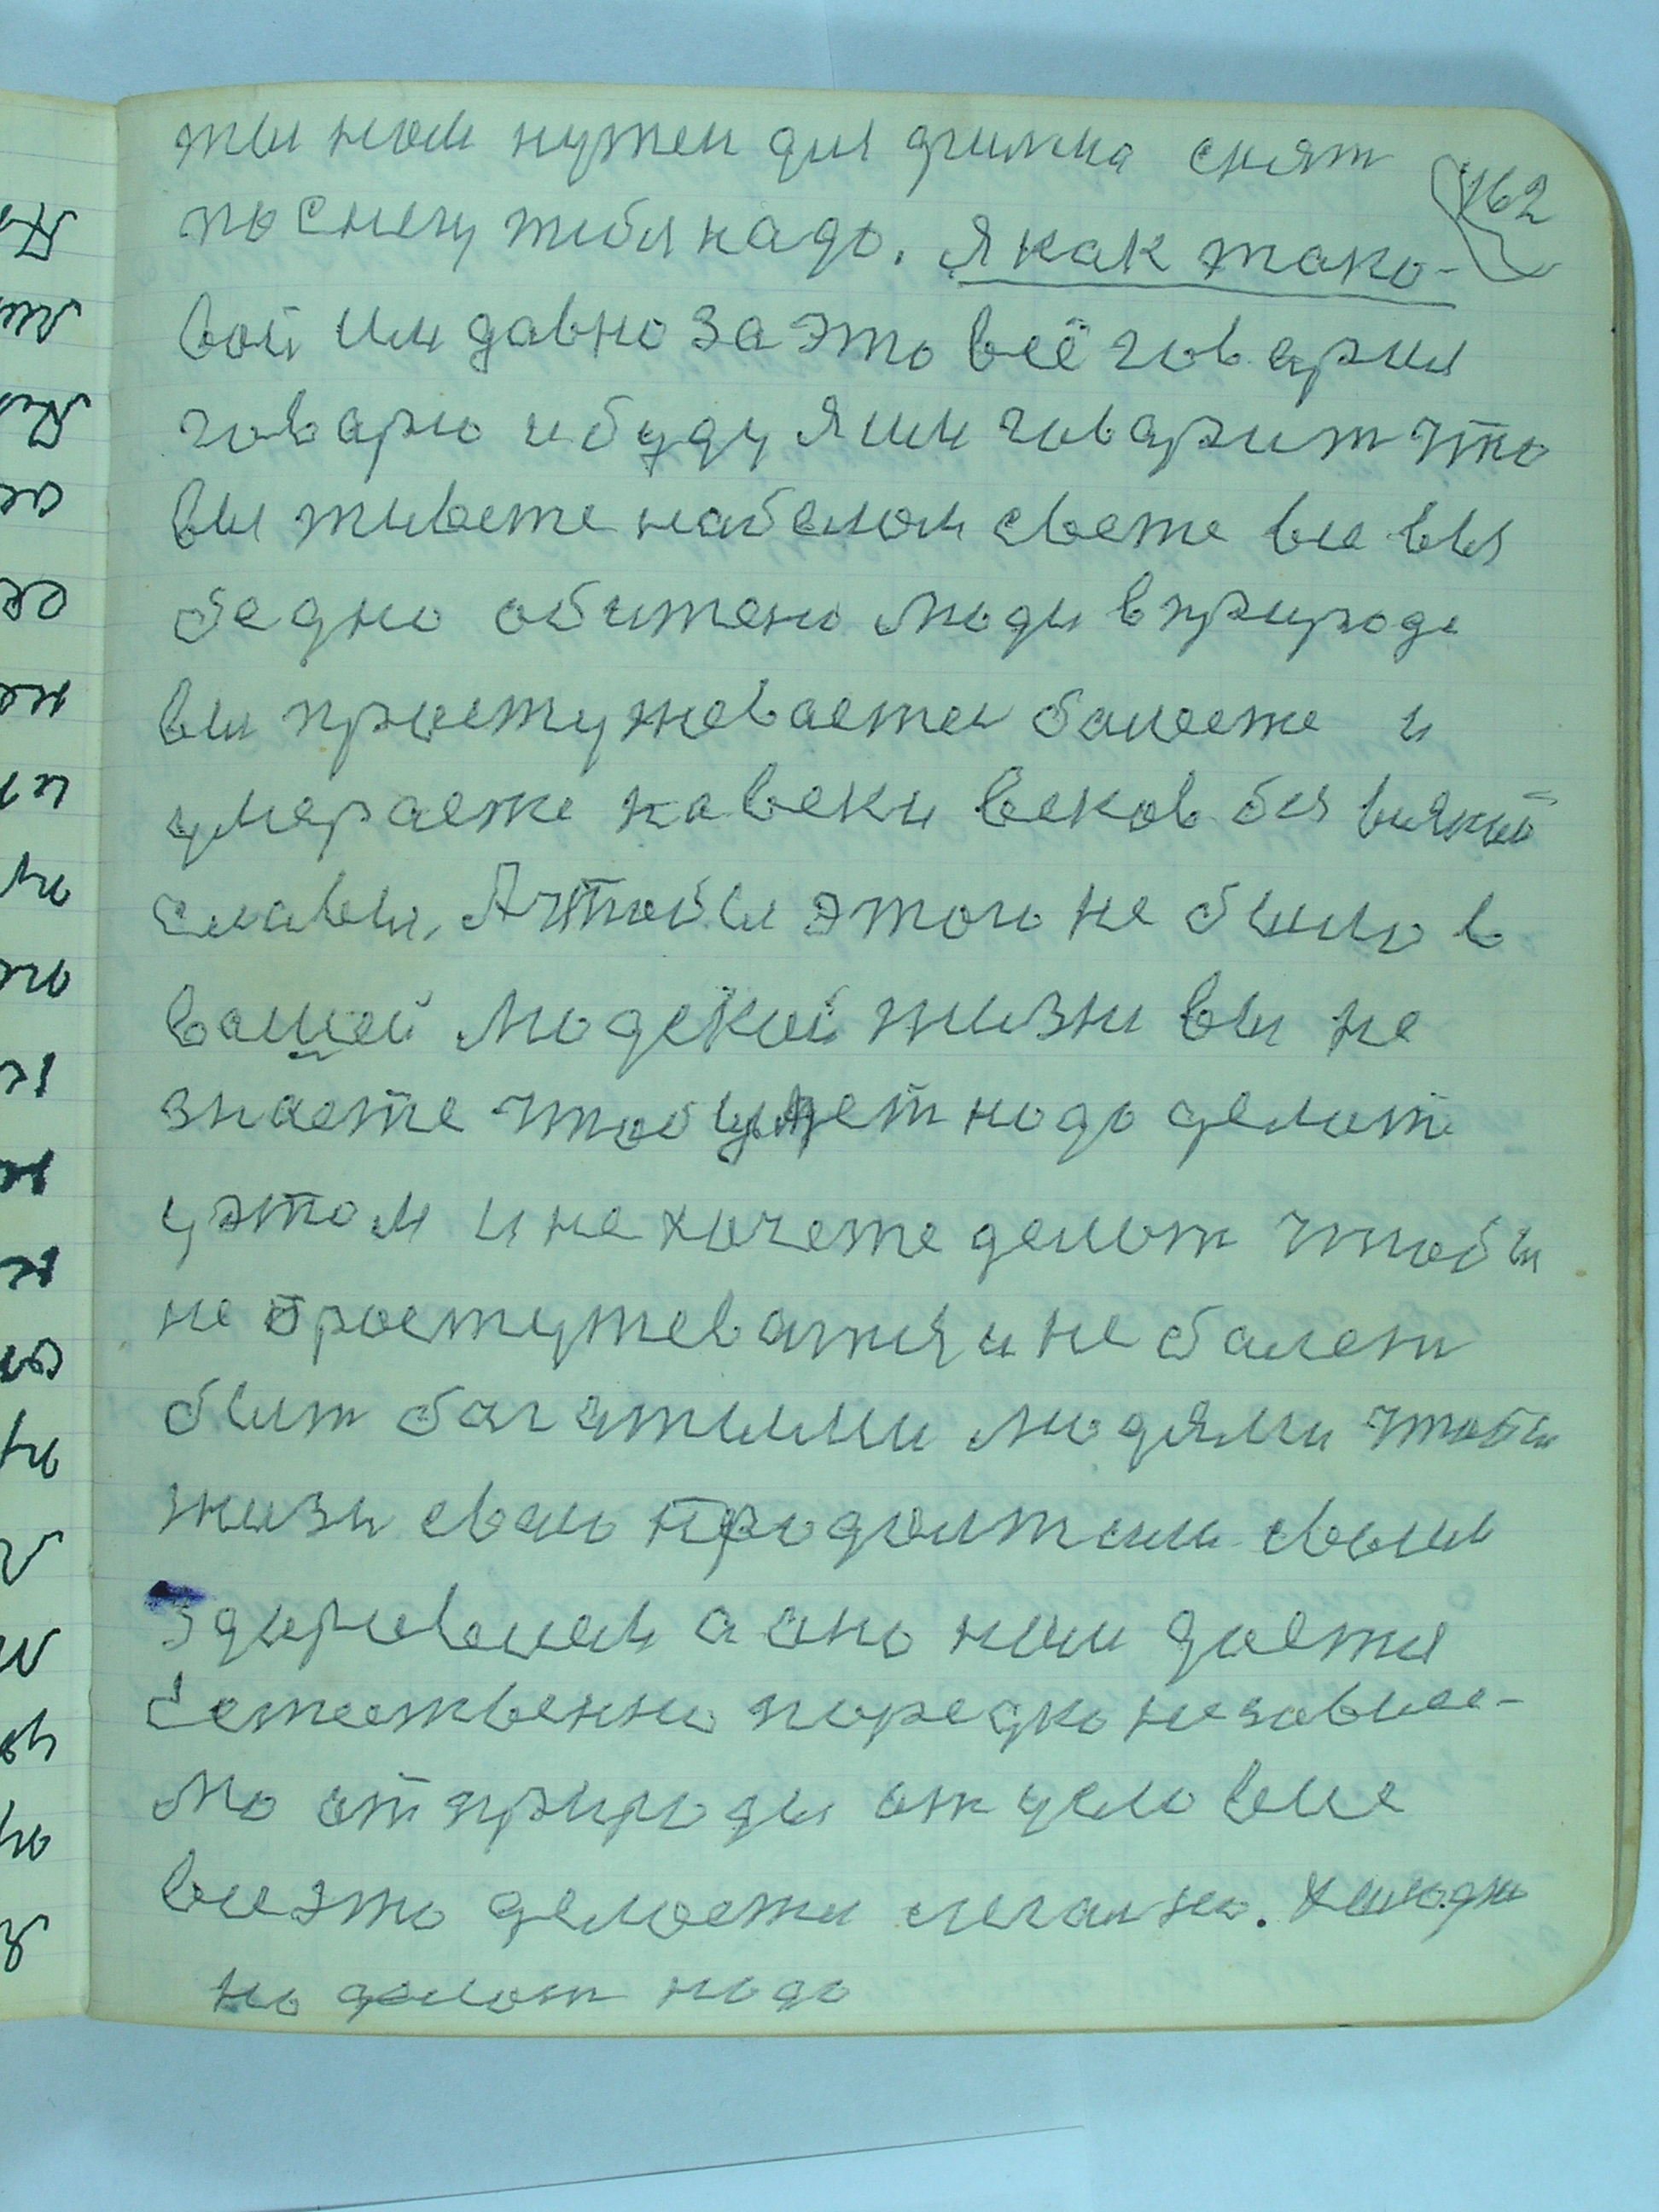 162
ты нам нужен для фильма снят
по снегу тибя надо. Я как тако-
вой им давно за это всё говарил
говарю и буду я им говарит что
вы живете на белом свете все вы
бедно обижено люди в природе
вы простужеваетес балеете и
умераете на веки веков без всякой
славы. А чтобы этого не было в
вашей людской жизни вы не
знаете что надо делат
у этом и не хочете делат чтобы
не простужеватся и не балет
быт багатыми людями чтобы
жизн сваю продолжили своим
здоровием а ано нам дается
Естественно независи-
мо от природы от условие
все это делается . Холодн
но делат надо